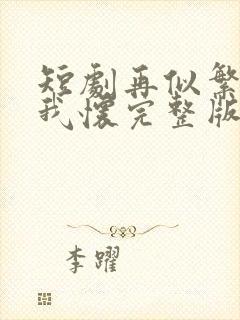 短劇再似繁
我懷完整版
李躍